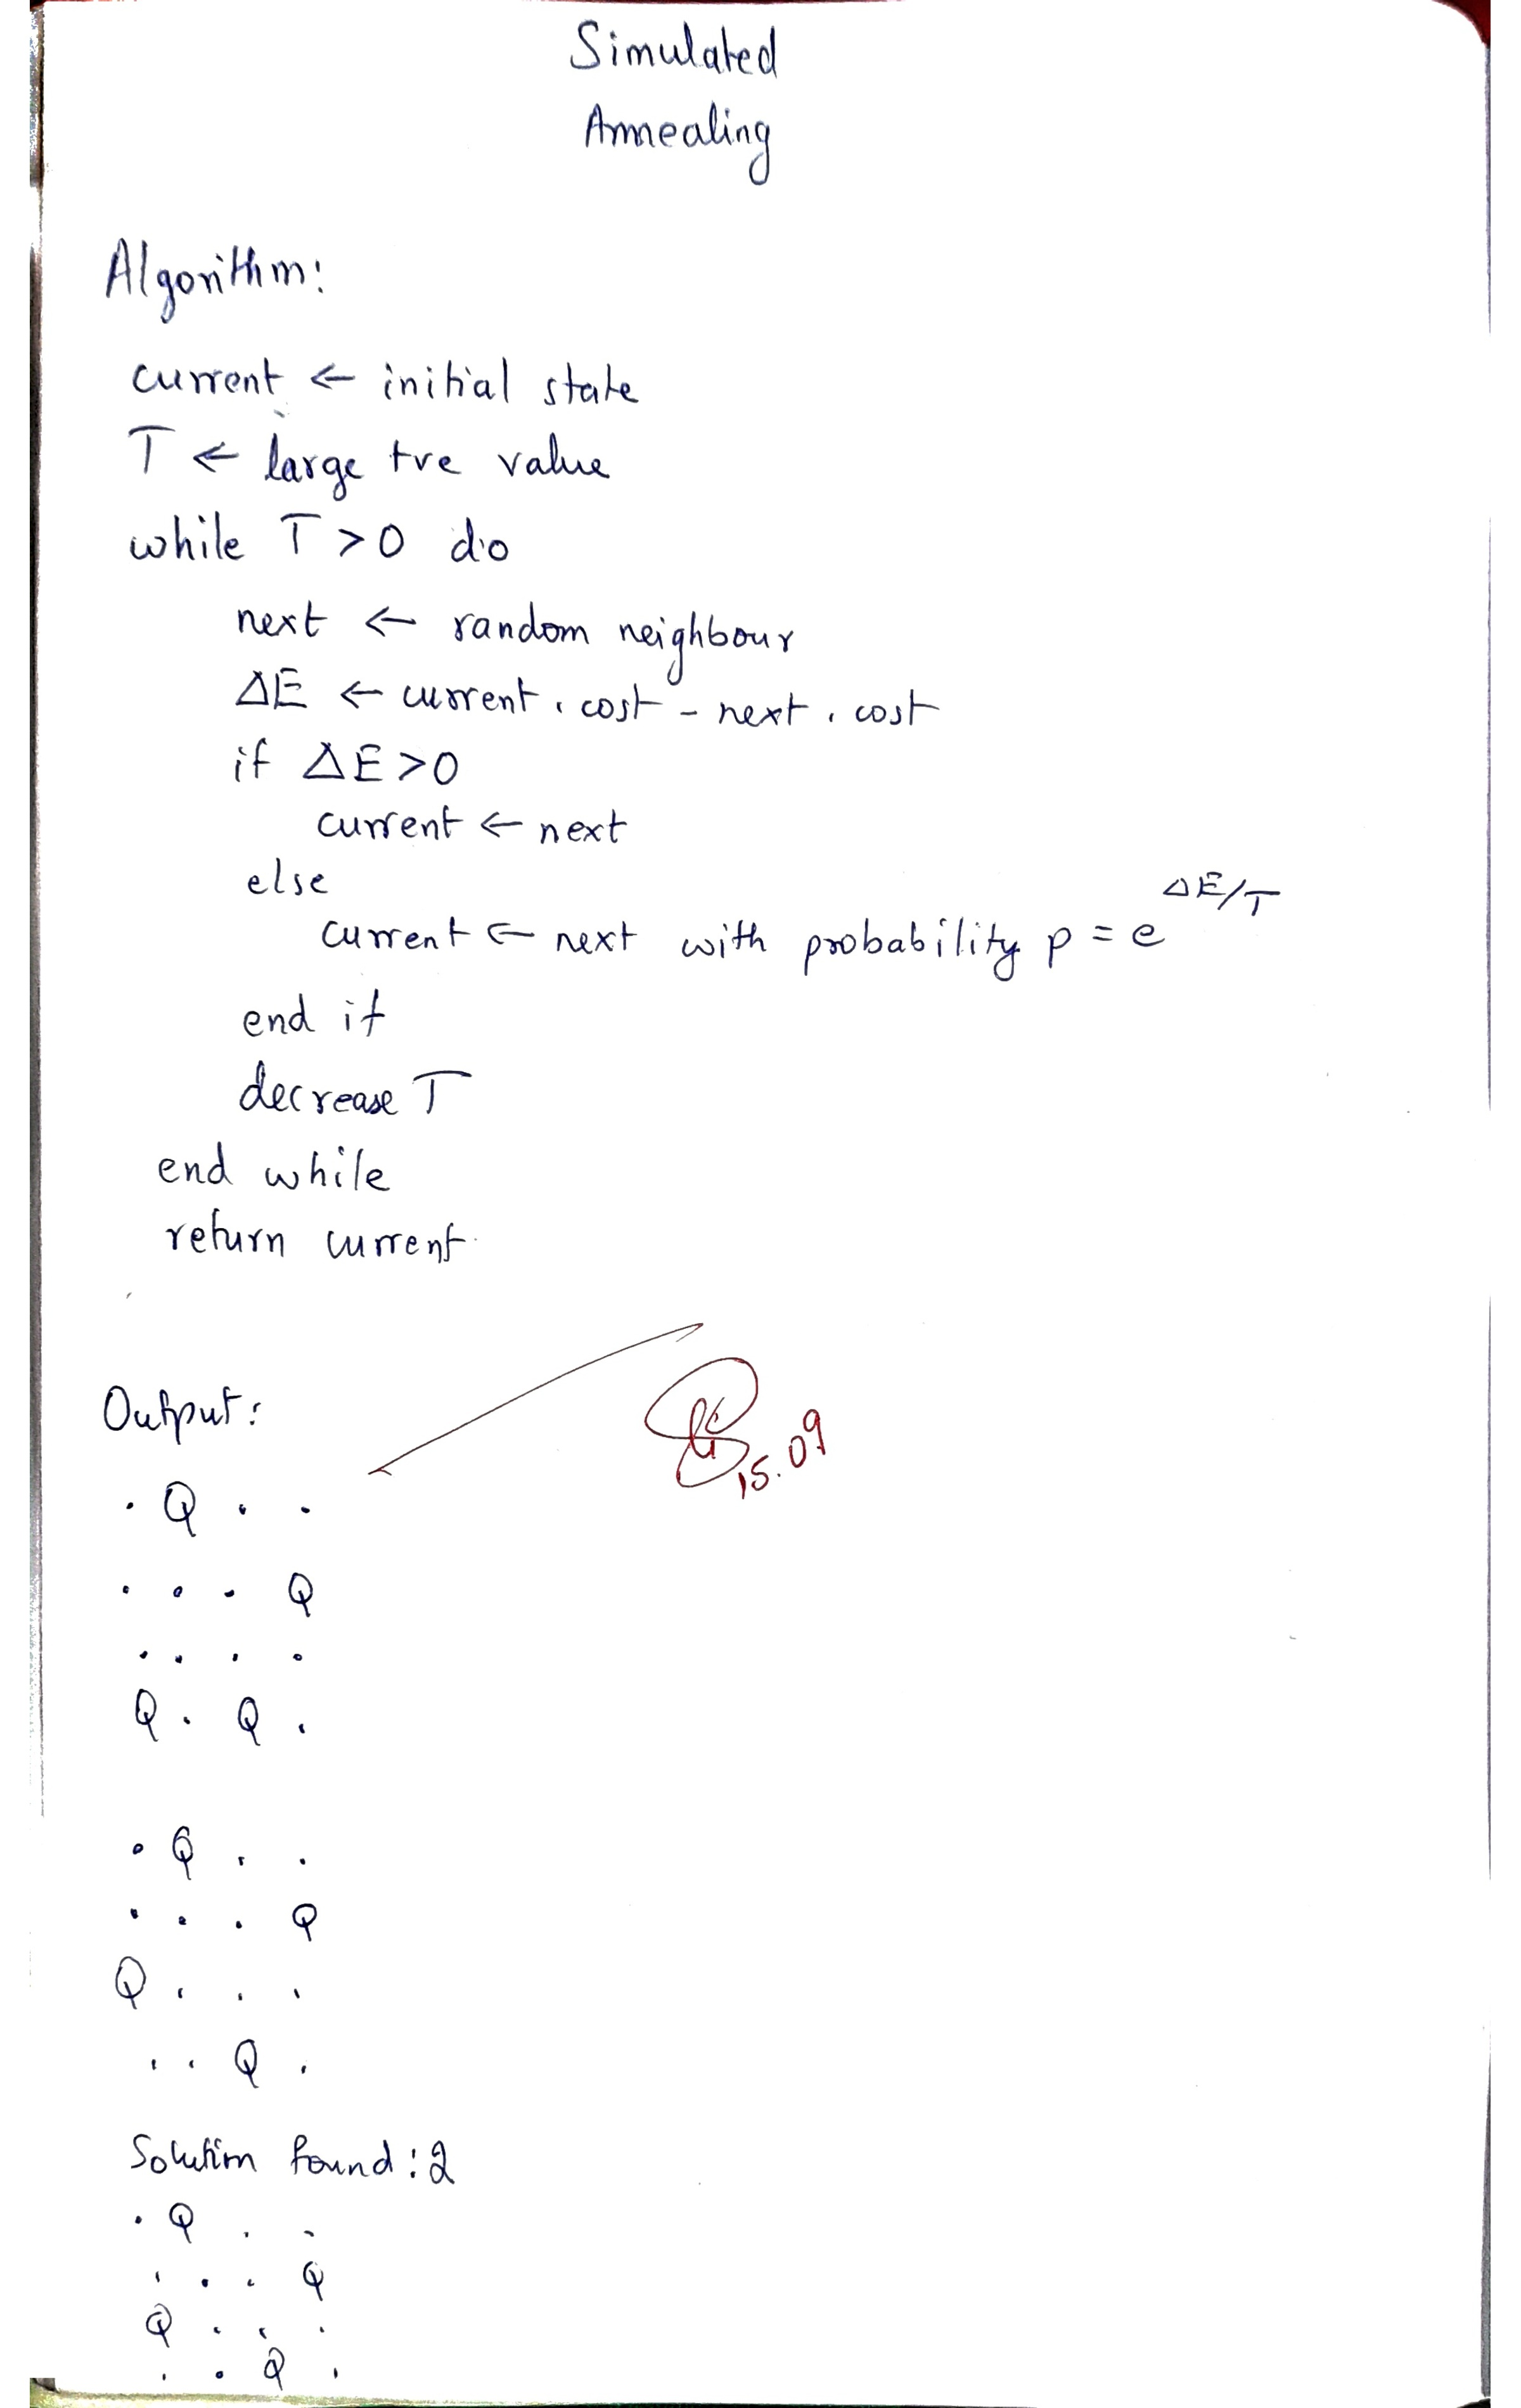 Simulated
Annealing
Algorithm:
current ← initial state
T ← large +ve value
while T > 0 do
next ← random neighbour
ΔE ← current.cost - next.cost
if ΔE > 0
current ← next
else
current ← next with probability p = e^ΔE/T
end if
decrease T
end while
return current
Output:
15.09
. Q . .
. . . Q
. . . .
Q . Q .
. Q . .
. . . Q
Q . . .
. . Q .
Solution found: 2
. Q . .
. . . Q
Q . . .
. . Q .